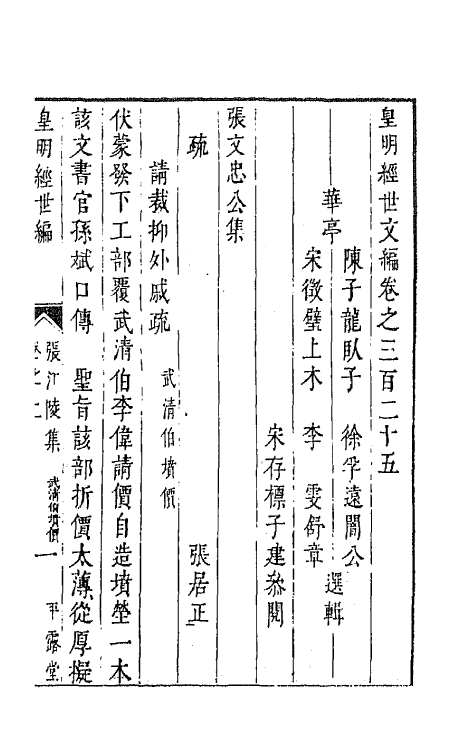 皇明經世文編卷之三百二十五
華亭
陳子龍臥子　徐孚遠闇公
宋徵璧上木　李　雯舒章
選輯
宋存標子建參閱
張文忠公集
疏　張居正
請裁抑外戚疏　武清伯墳價
伏蒙發下工部覆武清伯李偉請價自造墳塋一本
該文書官孫斌口傳　聖旨該部折價太薄從厚擬
皇明經世編
張江陵集
卷之一
武清伯墳價
一
平露堂